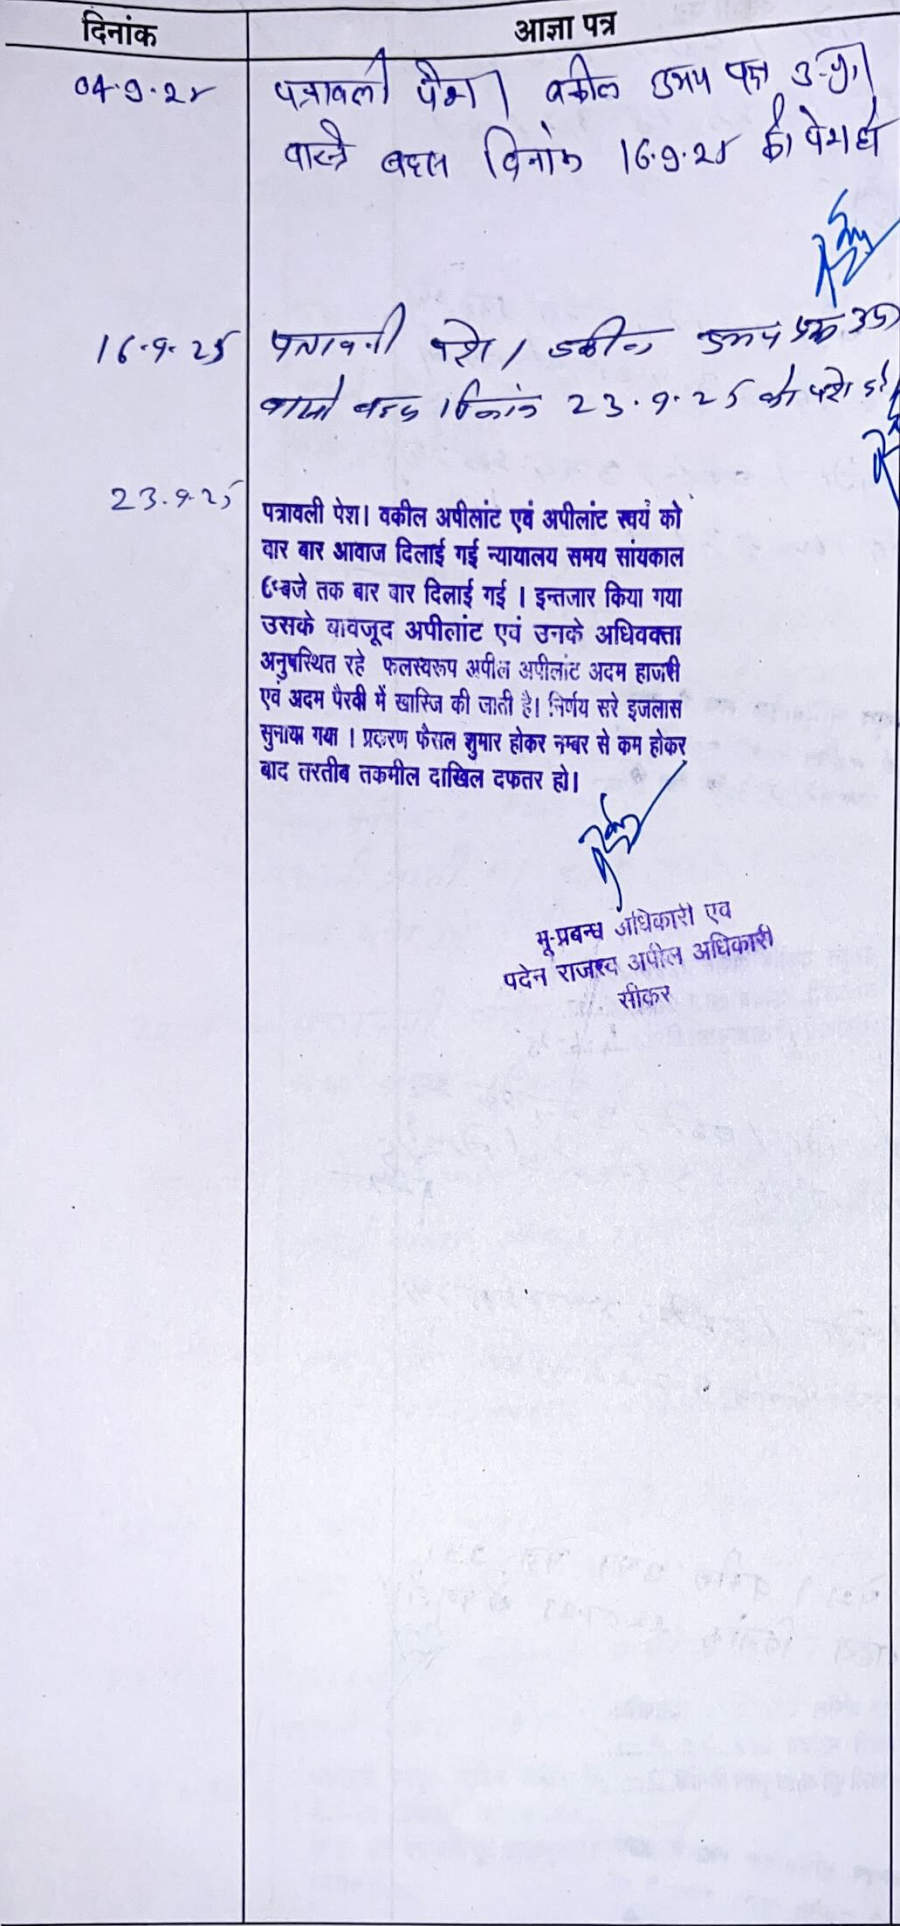 दिनांक
आज्ञा पत्र
04.9.25
पत्रावली पेश। वकील उभय पक्ष उप.।
वास्ते बहस दिनांक 16.9.25 को पेश हो
16.9.25
पत्रावली पेश। वकील उभय पक्ष उप
वास्ते बहस दिनांक 23.9.25 को पेश हो
23.9.25
पत्रावली पेश। वकील अपीलांट एवं अपीलांट स्वयं को
वार बार आवाज दिलाई गई न्यायालय समय सांयकाल
बजे तक बार वार दिलाई गई । इन्तजार किया गया
उसके बावजूद अपीलांट एवं उनके अधिवक्ता
अनुपस्थित रहे फलस्वरूप अपील अपीलांट अदम हाजरी
एवं अदम पैरवी में खारिज की जाती है। निर्णय सरे इजलास
सुनाया गया । प्रकरण फैसल शुमार होकर नम्बर से कम होकर
बाद तरतीब तकमील दाखिल दफतर हो।
भू-प्रबन्ध अधिकारी एव
पदेन राजस्व अपील अधिकारी
सीकर